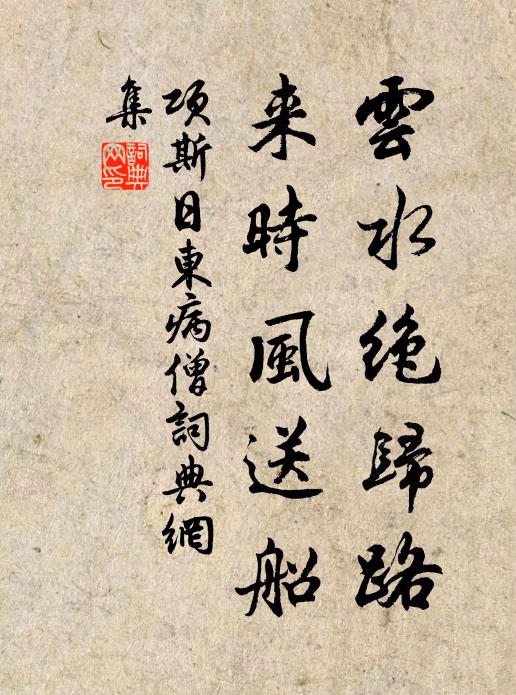 雲水絶歸路
来時風送船
項斯日東病僧詞典網
集
詞典網印